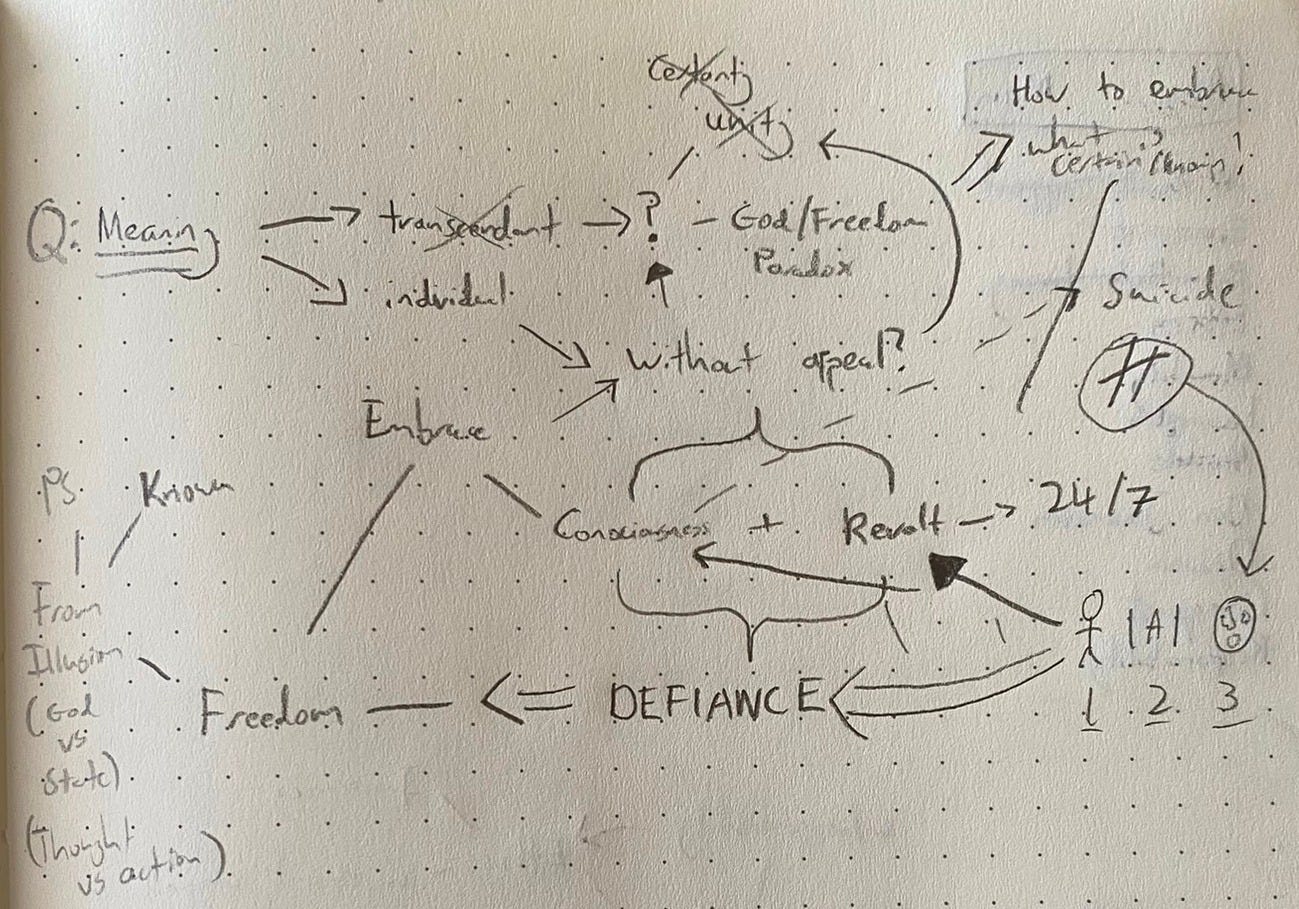 Certanty
unity
How to embrace
what is
certain/known?
Q: Meaning
transcendant
?
- God/Freedom
Paradox
individual
Suicide
Without appeal?
Embrace
PS
Known
Consciousness + Revolt
24/7
From
Illusion
(God
vs
State)
(Thought
vs action)
Freedom
DEFIANCE
|A|
1 2 3